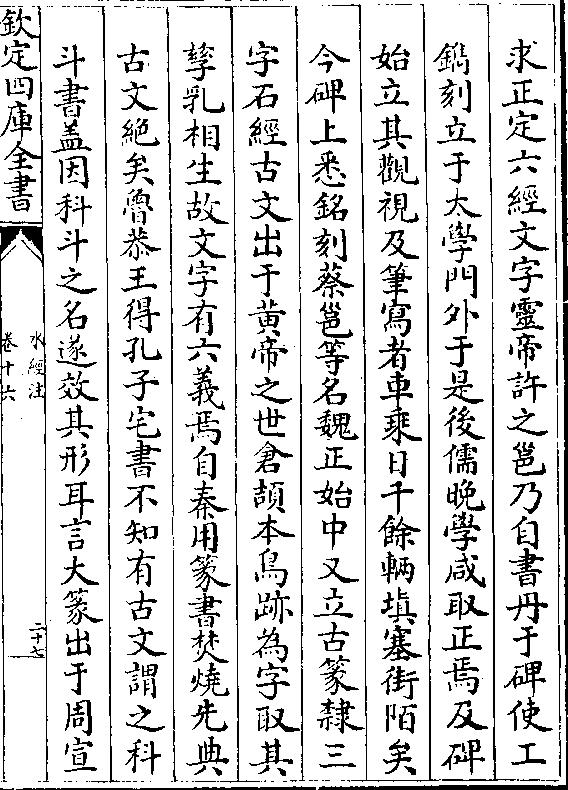 求正定六經文字靈帝許之邕乃自書丹于碑使工
鐫刻立于太學門外于是後儒晚學咸取正焉及碑
始立其觀視及筆寫者車乘日千餘輛塡塞街陌矣
今碑上悉銘刻蔡邕等名魏正始中又立古篆隸三
字石經古文出于黃帝之世倉頡本鳥跡為字取其
孳乳相生故文字有六義焉自秦用篆書焚燒先典
古文絶矣魯恭王得孔子宅書不知有古文謂之科
斗書盖因科斗之名遂效其形耳言大篆出于周宣
欽定四庫全書
水經注
卷十六
二十七